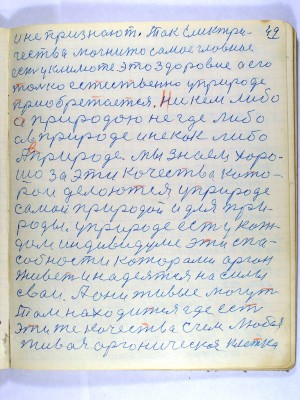 49
и не признают. Так Електри-
чества магнито самое главное
есть у климоте это здоровие а его
толко естественно у природе
приобретается. Ни кем либо
а природою не где либо
а в природе и не как либо
А в природе. мы знаем, хоро-
шо за эти качества като-
рои делоются у природе
самой природой и для при-
роды. у природе есть у кож-
дом индивидуме эти спа-
собности каторами орган
живет и надеятся на силы
сваи. А они живые могут
там находится где есть
эти же качества с чем любая
живая органическая клетка